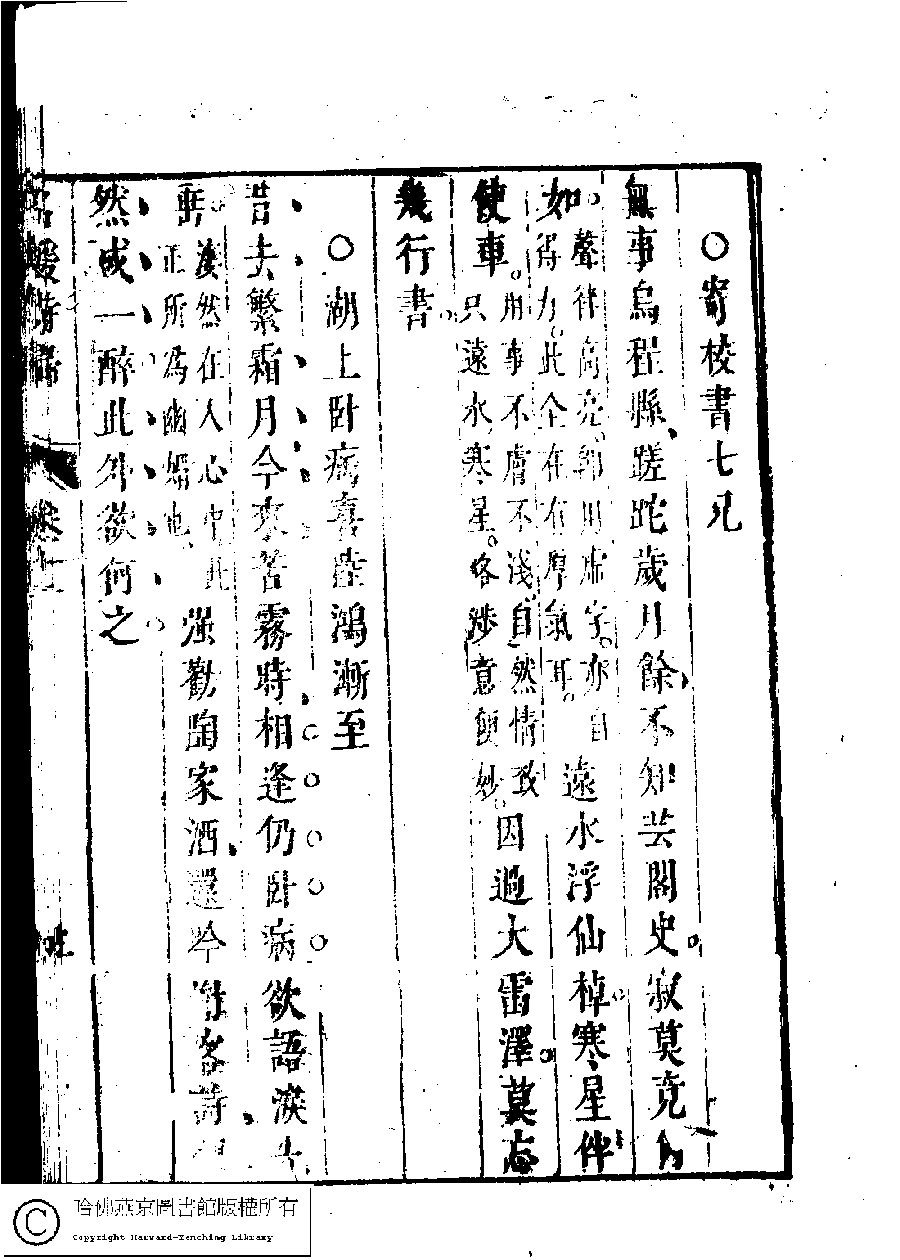 ○寄校書七兄
無事烏程縣蹉跎歲月餘不知芸閣史寂莫竟何
如
聲律高亮卸用虛字亦自
得力此全在有厚氣耳
遠水浮仙棹寒星伴
使車
用事不膚不淺自然情致
只遠水寒星略涉意便妙
因過大雷澤莫忘
幾行書
○湖上卧病喜陸鴻漸至
昔去繁霜月今來苦霧時相逢仍卧病欲語淚先
垂
淒然在人心中此
正所為幽媚也
強勸陶家酒還吟謝客詩
然成一醉此外欲何之
名媛詩歸
卷十一
哈佛燕京圖書館版權所有
Copyright Harvard-Yenching Library